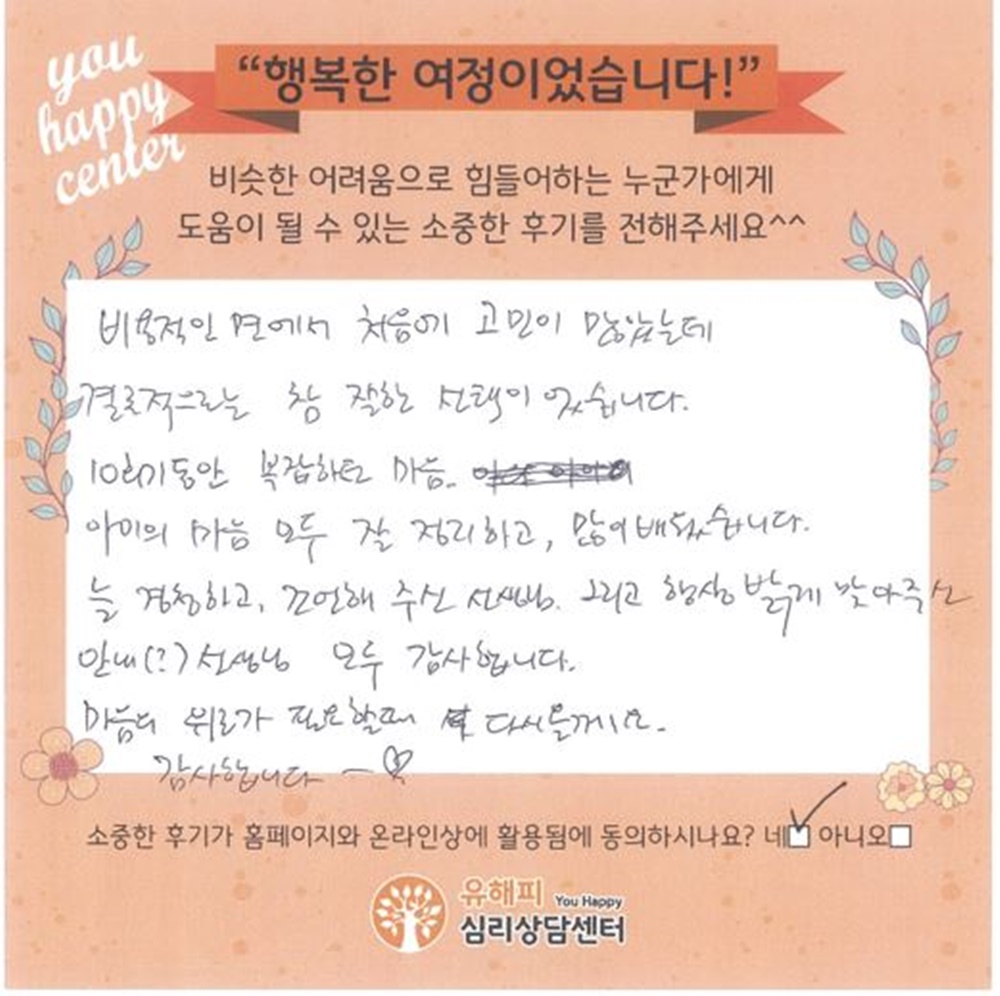 you
happy
center
“행복한 여정이었습니다!”
비슷한 어려움으로 힘들어하는 누군가에게
도움이 될 수 있는 소중한 후기를 전해주세요^^
비용적인 면에서 처음에 고민이 많았는데
결론적으로는 참 잘한 선택이었습니다.
10회기동안 복잡하던 마음.
아이의 마음 모두 잘 정리하고, 많이 배웠습니다.
늘 경청하고, 조언해 주신 선생님. 그리고 항상 밝게 맞아주신
안내(?)선생님 모두 감사합니다.
마음의 위로가 필요할때 다시올께요.
감사합니다 ~♡
소중한 후기가 홈페이지와 온라인상에 활용됨에 동의하시나요? 네☑ 아니오□
유해피 You Happy
심리상담센터